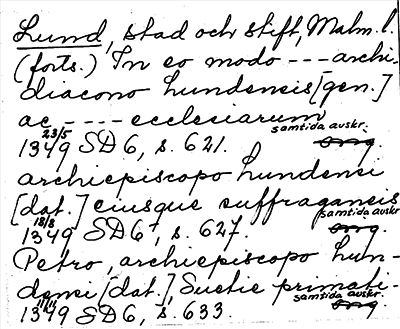 Lund, stad och stift, Malm. l.
(forts.) In eo modo --- archi-
diacono lundensis [gen.]
ac ---- ecclesiarum
23/5 samtida avskr.
1349 SD 6, s. 621. orig.
archiepiscopo lundensi
[dat.] eiusque suffraganeis
18/8 samtida avskr
1349 SD 6, s. 627. orig.
Petro, archiepiscopo lun-
densi [dat.], Suetie primati-
samtida avskr.
1349 SD 6, s. 633. orig.